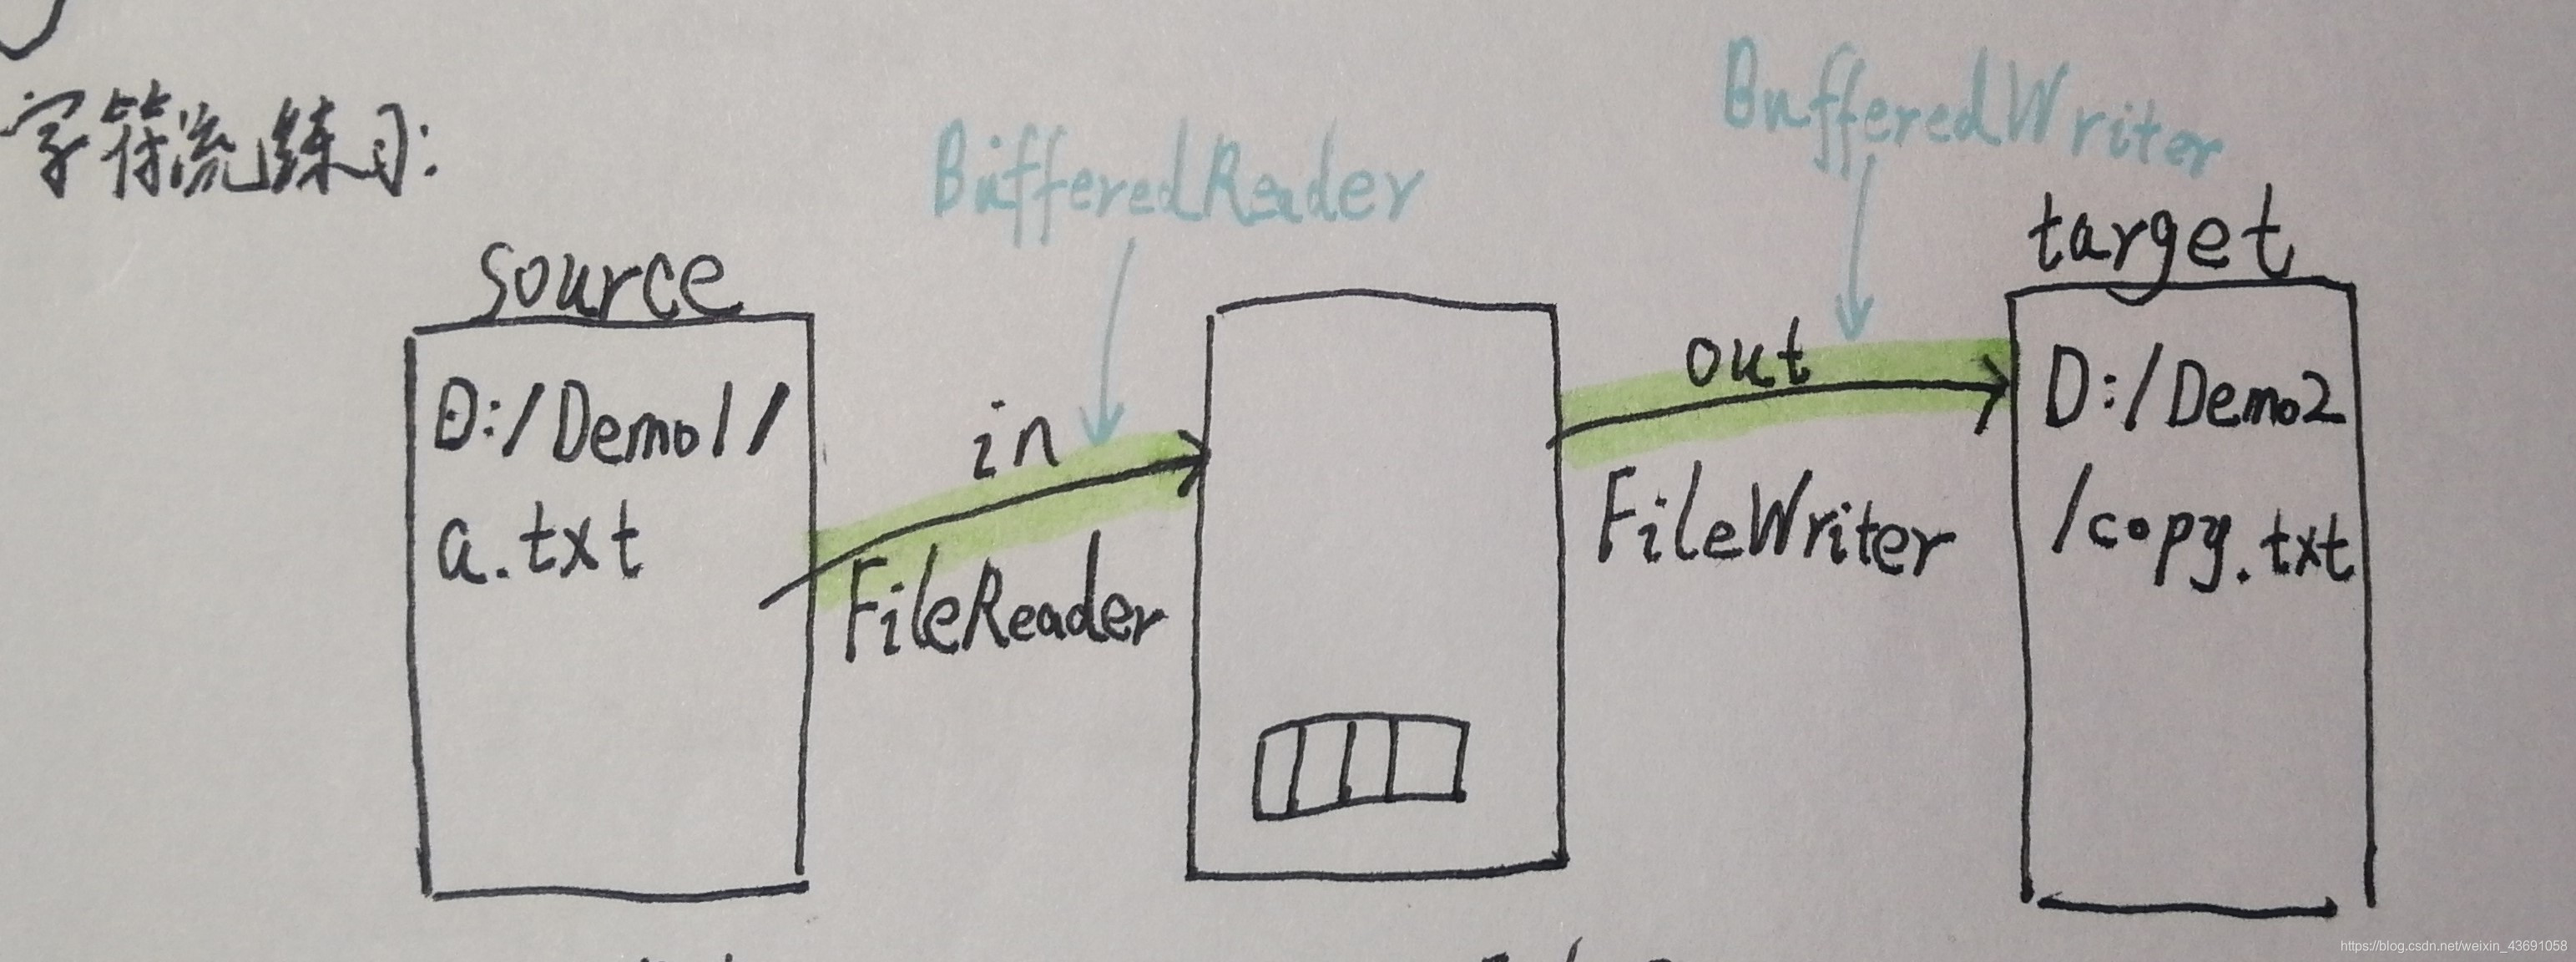 字符流练习:
BufferedReader
BufferedWriter
source
target
D:/Demo1/
a.txt
in
FileReader
out
FileWriter
D:/Demo2
/copy.txt
https://blog.csdn.net/weixin_43691058